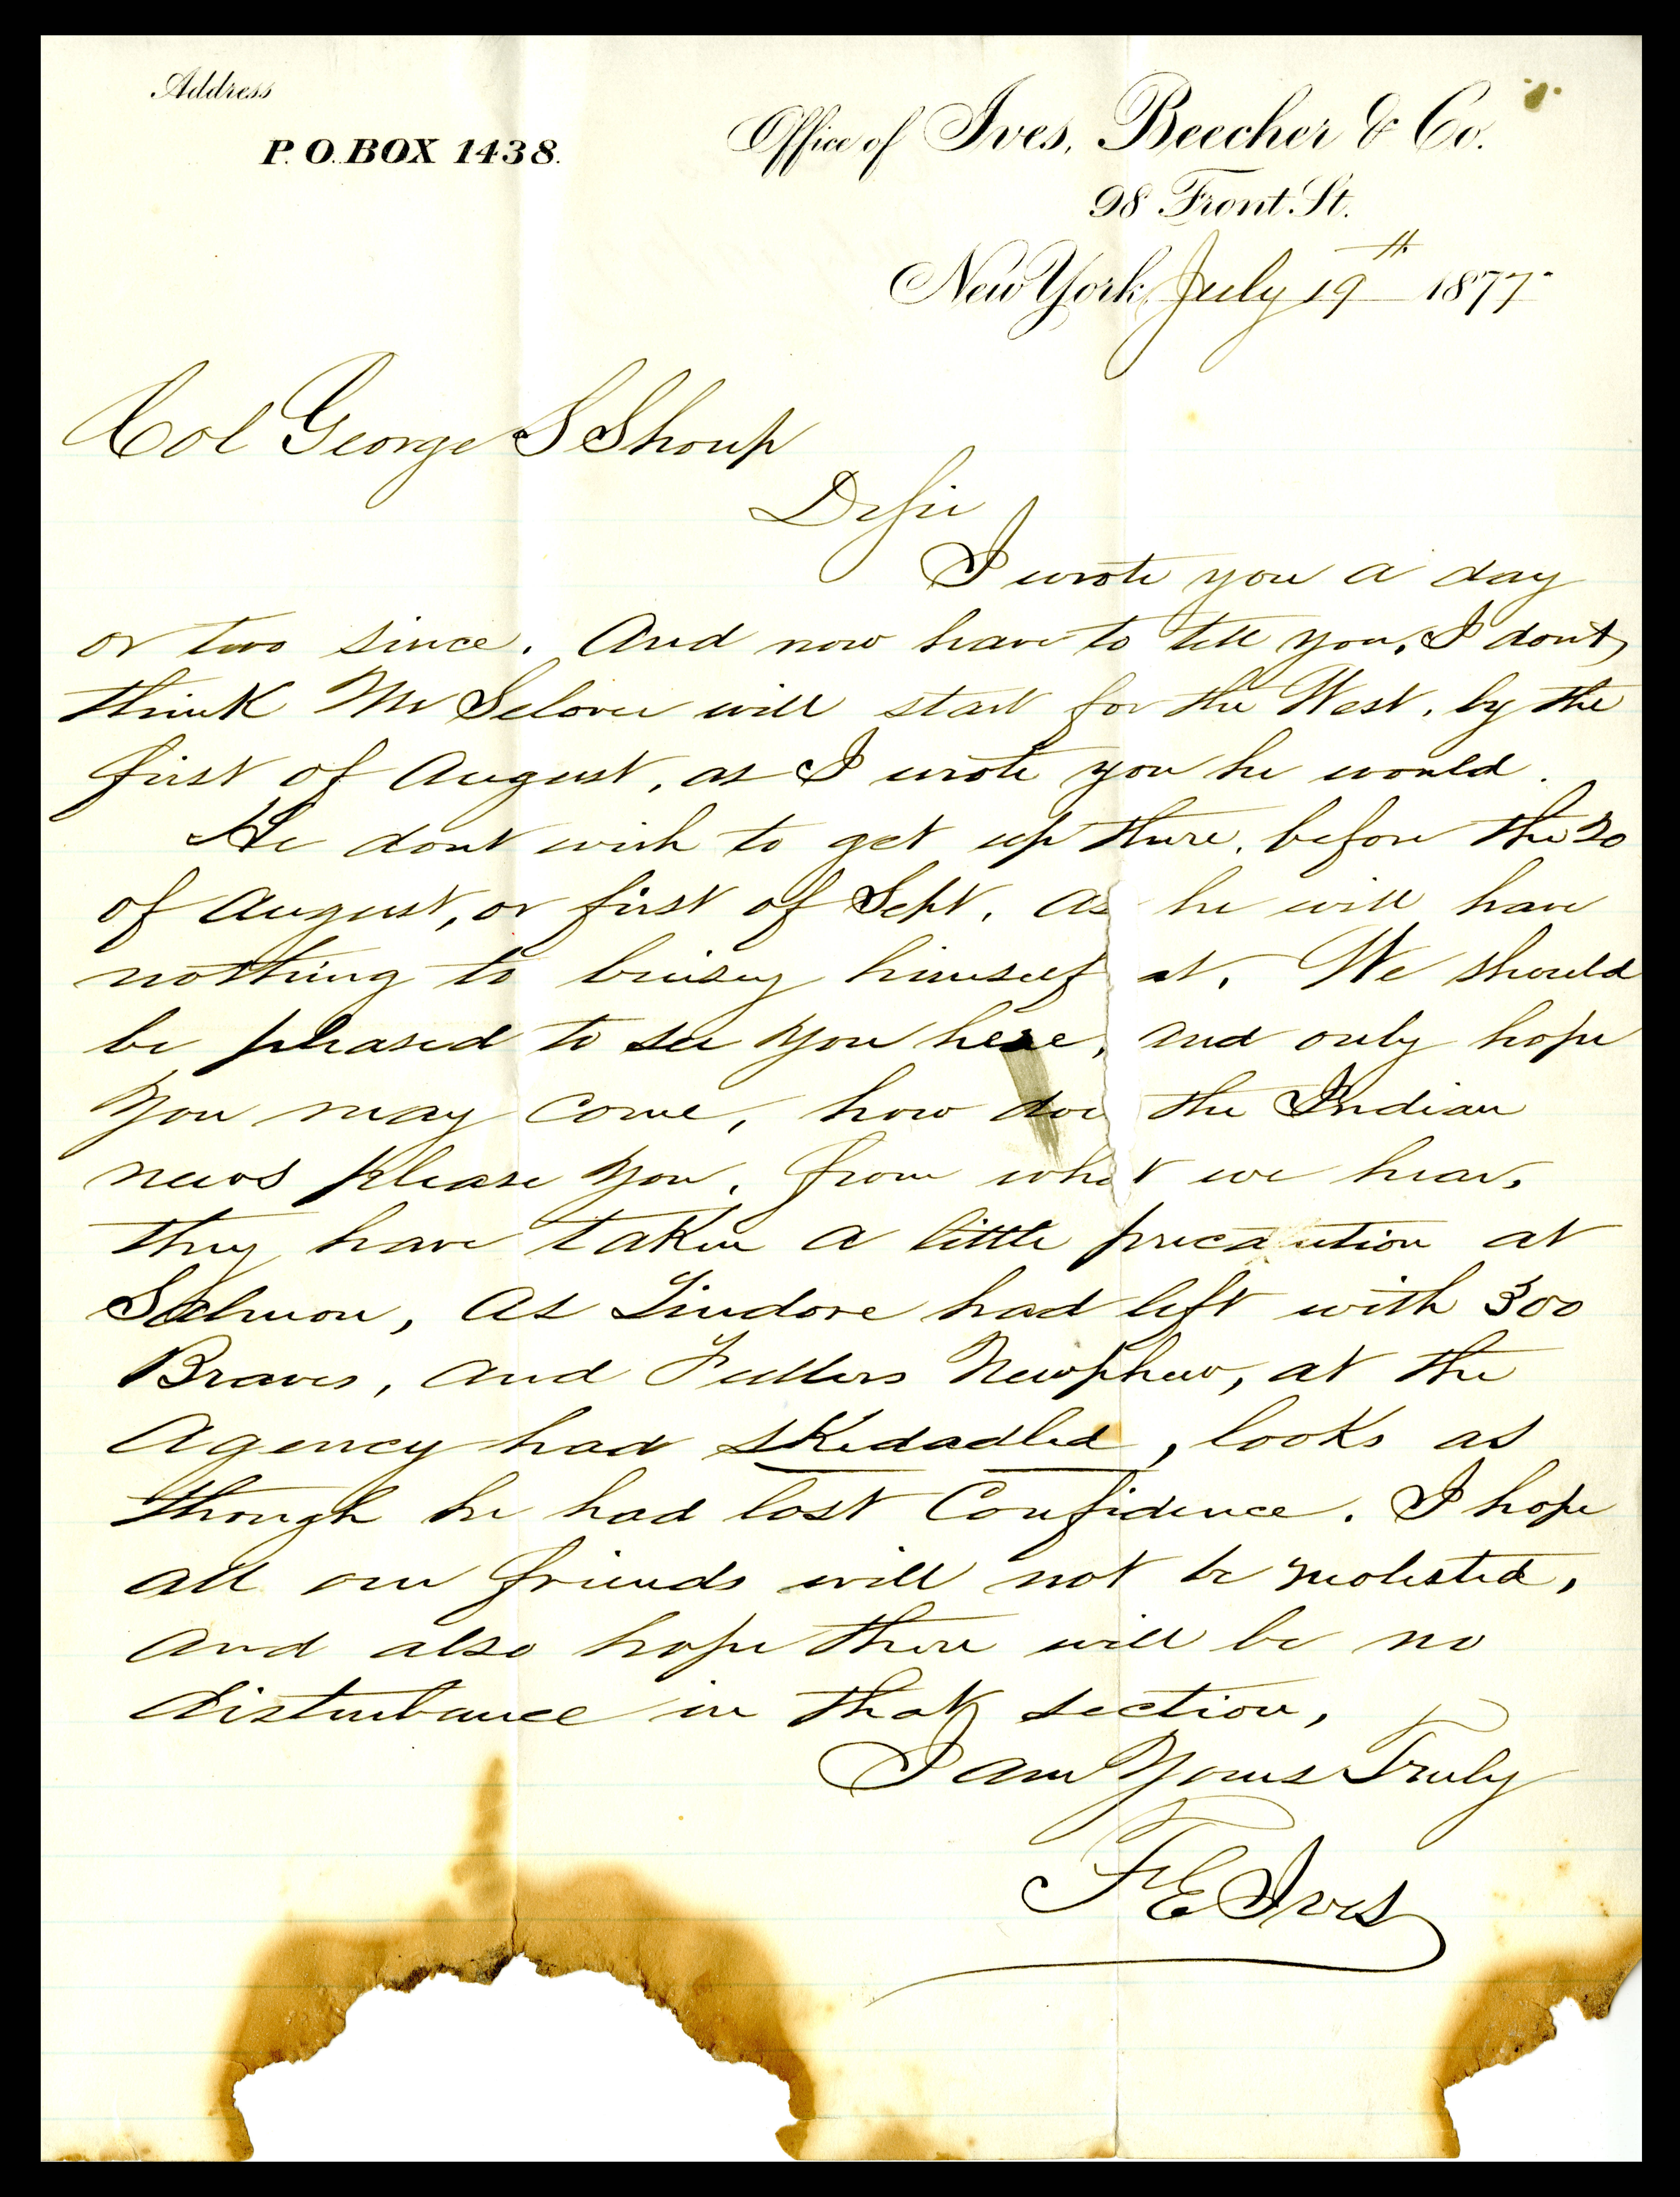 Address
P. O. BOX 1438.
Office of Ives, Beecher & Co.
98 Front St.
New York, July 19th 1877
Col George S Shoup
Dr Sir
I wrote you a day
or two since. And now have to tell you, I dont
think Mr Selover will start for the West, by the
first of August, as I wrote you he would.
He dont wish to get up there, before the 20
of August, or first of Sept, as he will have
nothing to buisy himself at. We should
be pleased to see you here, and only hope
you may come, how does the Indian
news please you, from what we hear,
they have taken a little precaution at
Salmon, As Tindore had left with 300
Braves, and Fullers Newphew, at the
Agency had skedadled, looks as
though he had lost Confidence. I hope
all our friends will not be molested,
and also hope there will be no
disturbance in that section,
I am Yours Truly
F E Ives